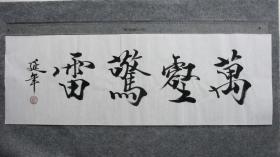 萬壑驚雷
延年